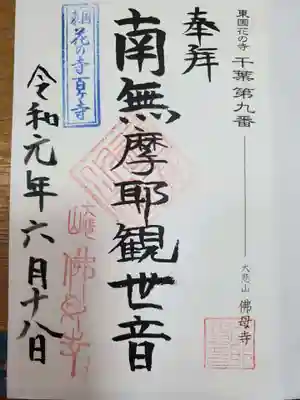 東国花の寺 千葉 第九番
大悲山 佛母寺
奉拝
南無摩耶観世音
東国
花の寺百ヶ寺
令和元年六月十八日
佛母寺